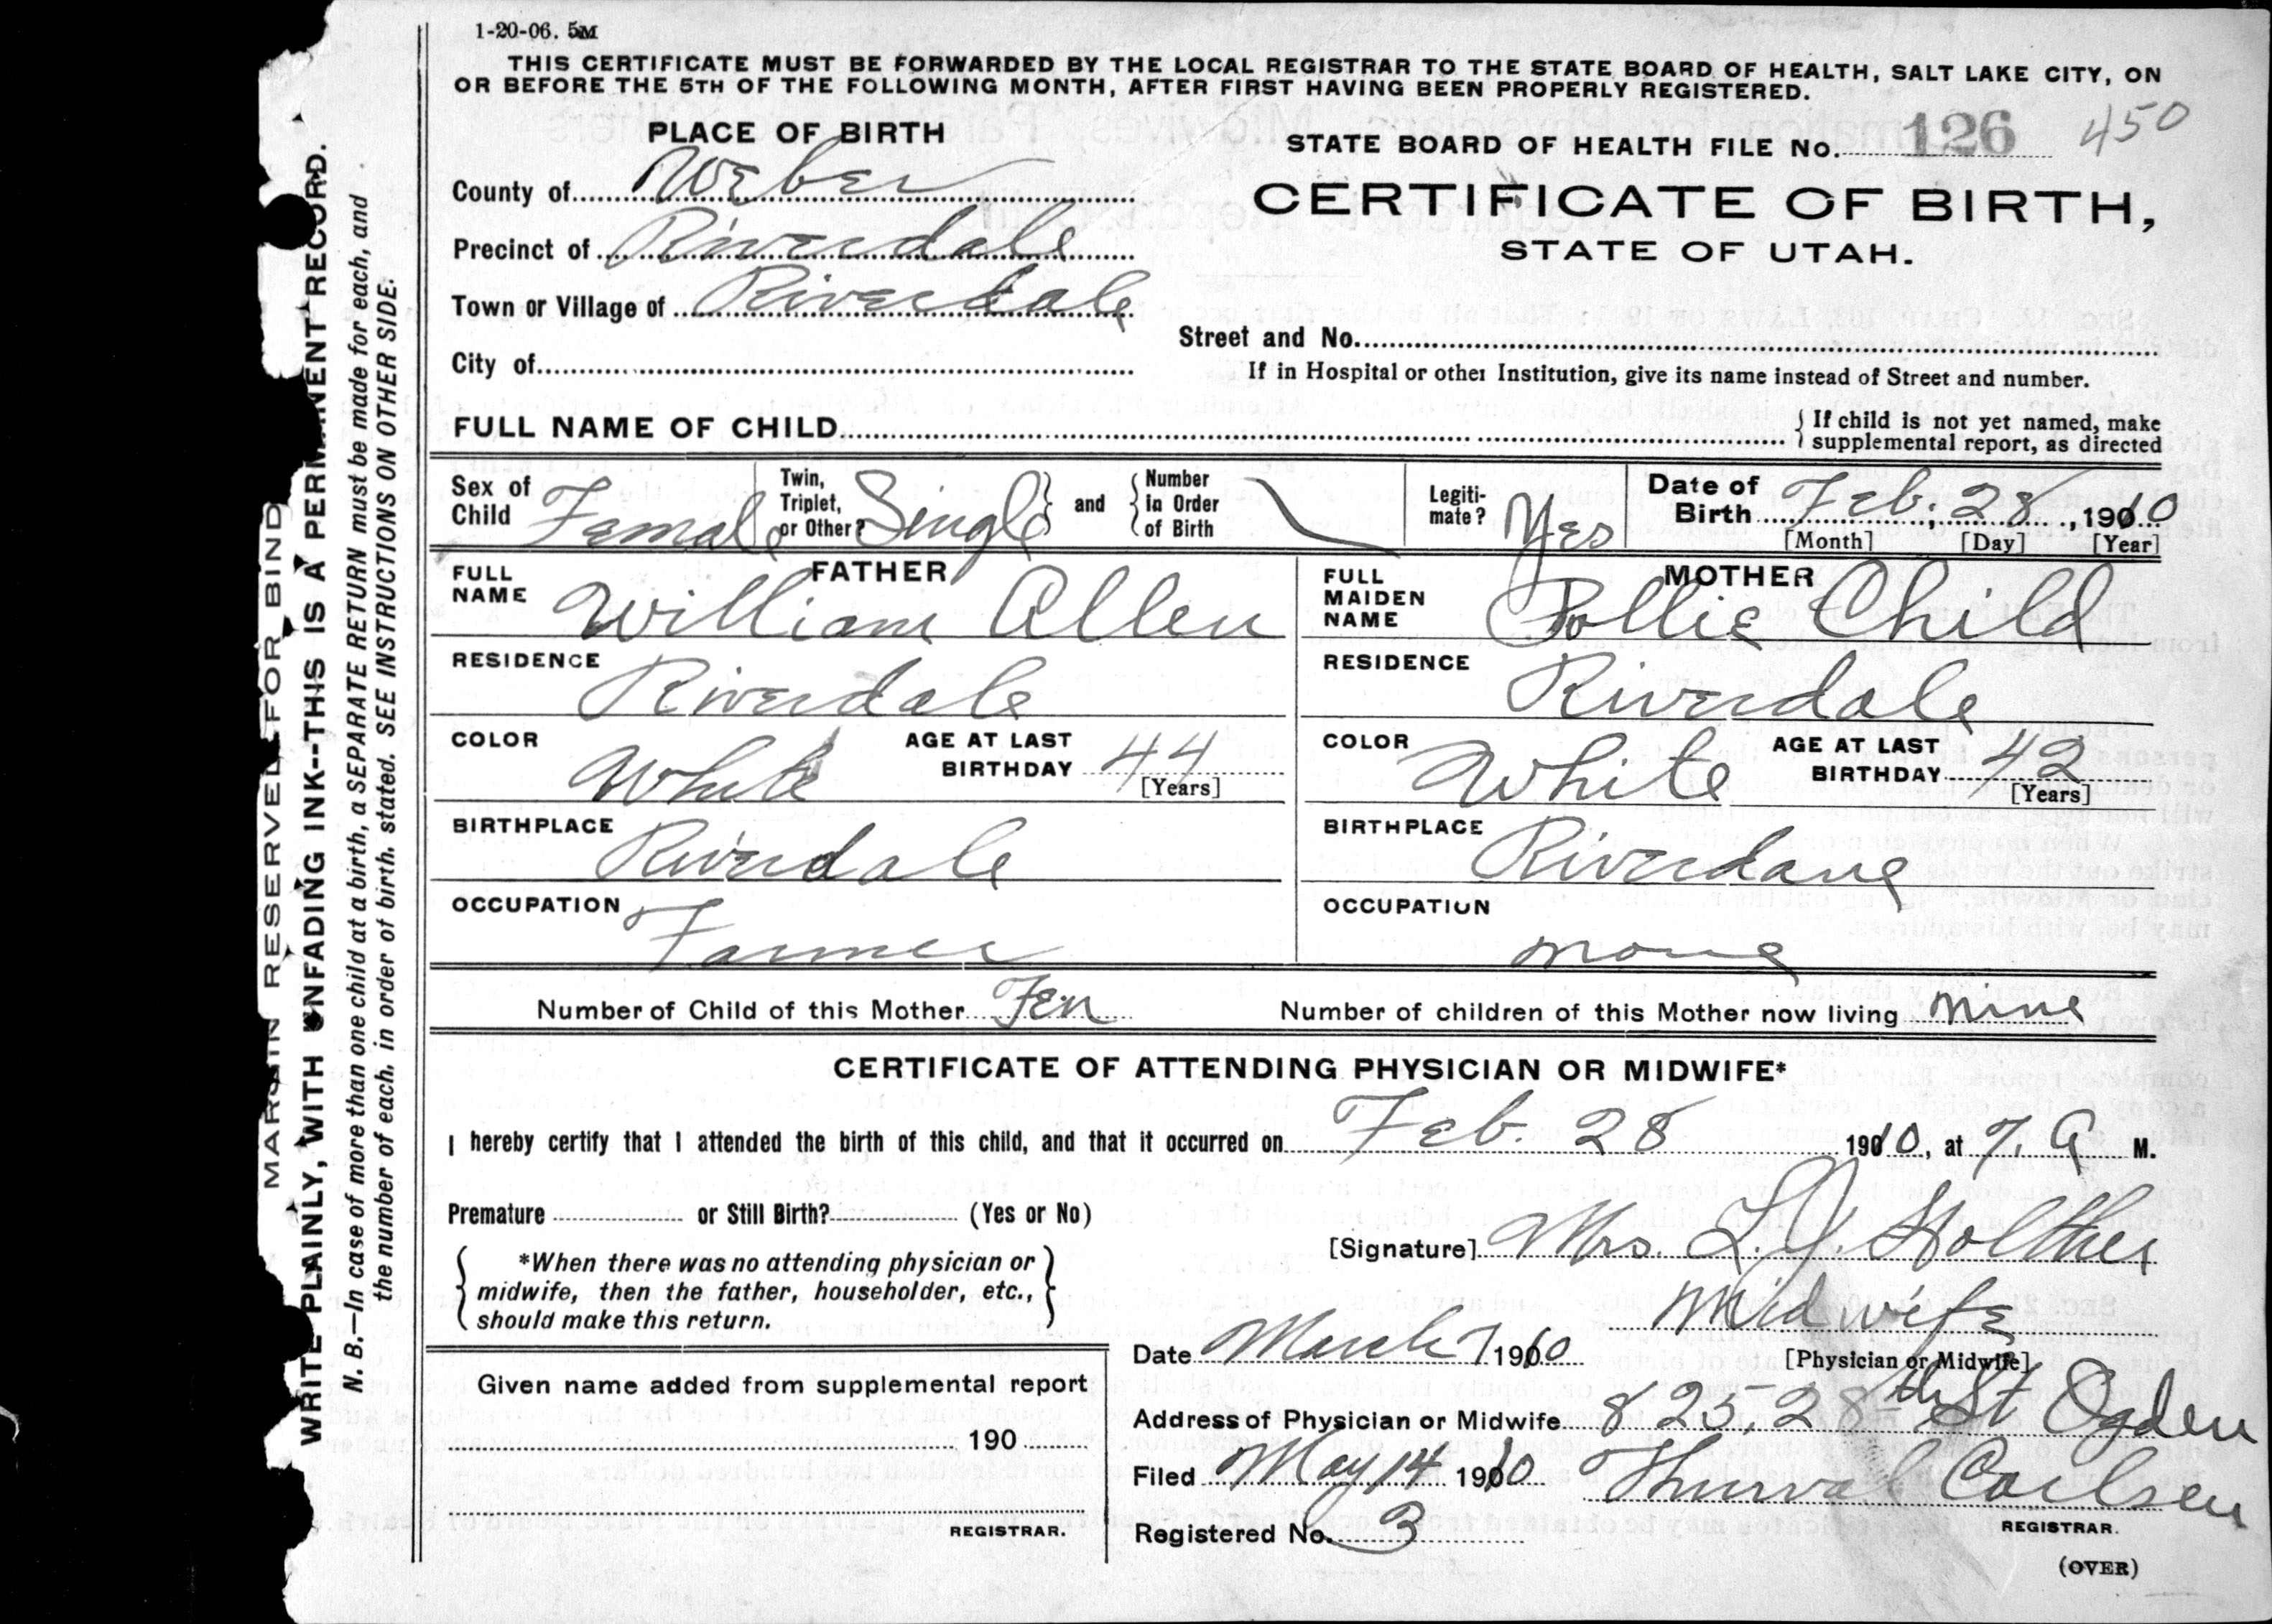 1-20-06. 5M
THIS CERTIFICATE MUST BE FORWARDED BY THE LOCAL REGISTRAR TO THE STATE BOARD OF HEALTH, SALT LAKE CITY, ON
OR BEFORE THE 5TH OF THE FOLLOWING MONTH, AFTER FIRST HAVING BEEN PROPERLY REGISTERED.
PLACE OF BIRTH
STATE BOARD OF HEALTH FILE No. 126 450
County of Weber
CERTIFICATE OF BIRTH,
Precinct of Riverdale
STATE OF UTAH.
Town or Village of Riverdale
Street and No.
City of
If in Hospital or other Institution, give its name instead of Street and number.
FULL NAME OF CHILD
If child is not yet named, make
supplemental report, as directed
Sex of Child Female
Twin, Triplet, or Other? Single
and
Number in Order of Birth
Legiti-mate? Yes
Date of Birth Feb. 28, 1910
[Month] [Day] [Year]
FATHER
FULL NAME William Allen
RESIDENCE Riverdale
COLOR White
AGE AT LAST BIRTHDAY 44
[Years]
BIRTHPLACE Riverdale
OCCUPATION Farmer
MOTHER
FULL MAIDEN NAME Pollie Child
RESIDENCE Riverdale
COLOR White
AGE AT LAST BIRTHDAY 42
[Years]
BIRTHPLACE Riverdane
OCCUPATION none
Number of Child of this Mother Ten
Number of children of this Mother now living nine
CERTIFICATE OF ATTENDING PHYSICIAN OR MIDWIFE*
I hereby certify that I attended the birth of this child, and that it occurred on Feb. 28 1910, at 7. A M.
Premature or Still Birth? (Yes or No)
[Signature] Mrs. L. J. Holther
*When there was no attending physician or
midwife, then the father, householder, etc.,
should make this return.
Midwife
Date March 7 1910
[Physician or Midwife]
Given name added from supplemental report
Address of Physician or Midwife 823-28th St Ogden
190
Filed May 14 1910 Thurval Carlsen
REGISTRAR.
Registered No. 3
REGISTRAR.
(OVER)
MARGIN RESERVED FOR BIND
WRITE PLAINLY, WITH UNFADING INK--THIS IS A PERMANENT RECORD.
N. B.—In case of more than one child at a birth, a SEPARATE RETURN must be made for each, and
the number of each, in order of birth, stated. SEE INSTRUCTIONS ON OTHER SIDE.